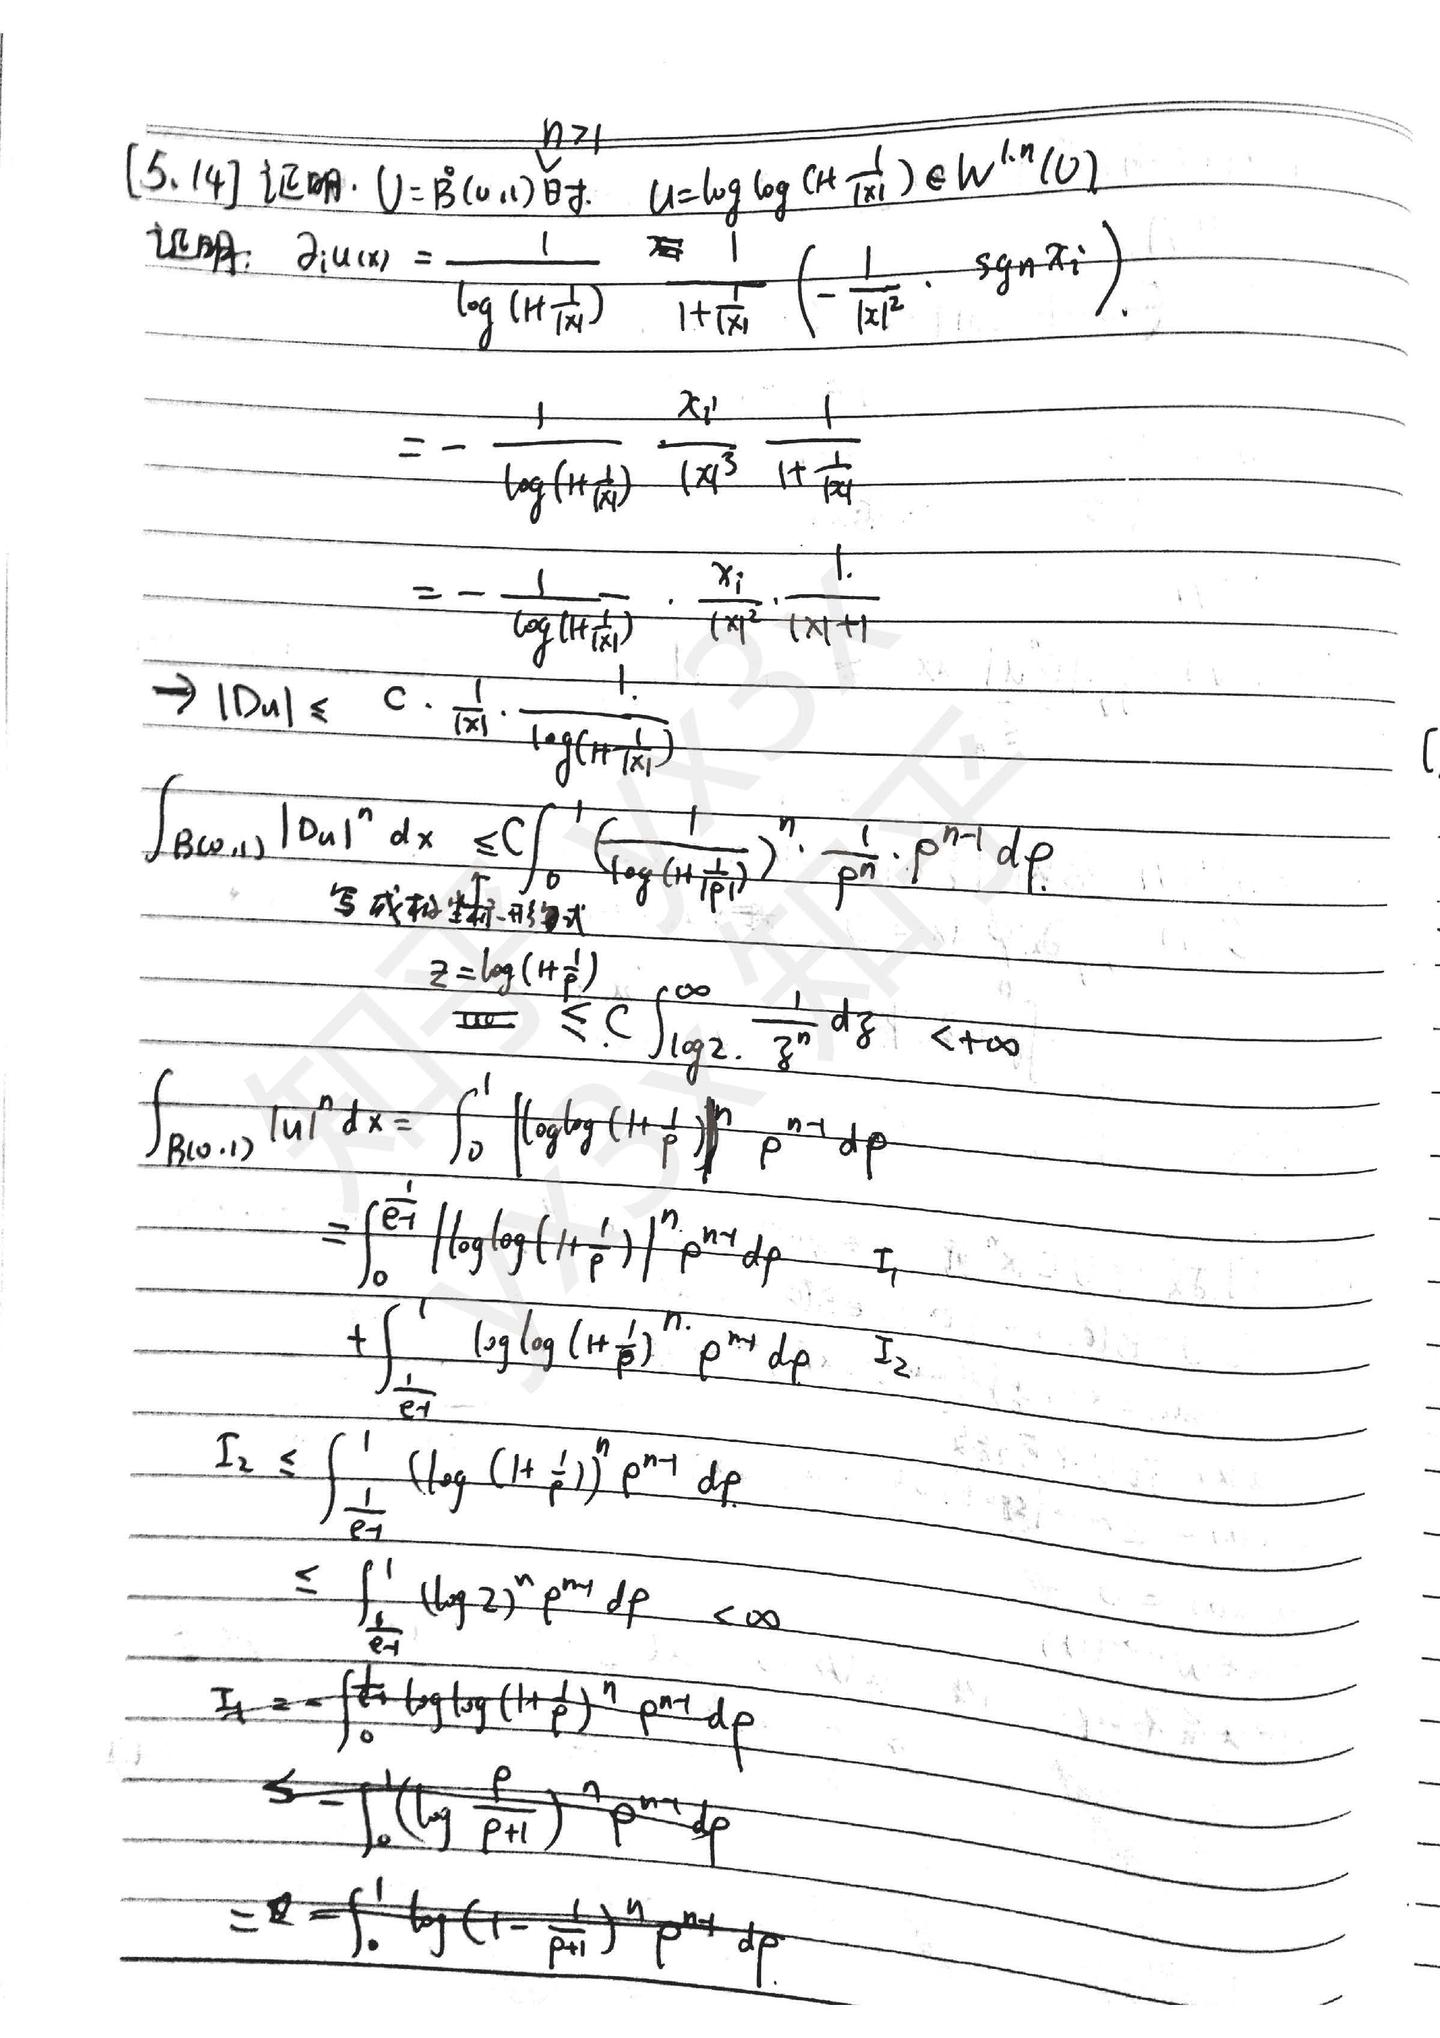 n>1
[5.14] 证明. U=B°(0,1)时. u=log log(1+1/|x|)∈W^{1,n}(U)
证明: ∂ᵢu(x) = 1/log(1+1/|x|) 1/(1+1/|x|) (-1/|x|² · sgn xᵢ).
= - 1/log(1+1/|x|) xᵢ/|x|³ 1/(1+1/|x|)
= - 1/log(1+1/|x|) · xᵢ/|x|² · 1/(|x|+1)
→ |Du| ≤ C · 1/|x| · 1/log(1+1/|x|)
∫_{B(0,1)} |Du|ⁿ dx ≤ C∫₀¹ (1/log(1+1/|ρ|))ⁿ · 1/ρⁿ · ρ^{n-1} dρ.
写成极坐标形式
z=log(1+1/ρ)
≤ C ∫_{log2}^∞ 1/zⁿ dz <+∞
∫_{B(0,1)} |u|ⁿ dx = ∫₀¹ |log log(1+1/ρ)|ⁿ ρ^{n-1} dρ
= ∫₀^{1/(e-1)} |log log(1+1/ρ)|ⁿ ρ^{n-1} dρ I₁
+ ∫_{1/(e-1)}^1 log log(1+1/ρ)ⁿ ρ^{n-1} dρ I₂
I₂ ≤ ∫_{1/(e-1)}^1 (log(1+1/ρ))ⁿ ρ^{n-1} dρ
≤ ∫_{1/(e-1)}^1 (log2)ⁿ ρ^{n-1} dρ <∞
I₁ = -∫₀^{1/(e-1)} log log(1+1/ρ)ⁿ ρ^{n-1} dρ
≤ -∫₀¹ (log ρ/(ρ+1))ⁿ ρ^{n-1} dρ
= -∫₀¹ log(1-1/(ρ+1))ⁿ ρ^{n-1} dρ
知乎 yx3x
yx3x 知乎